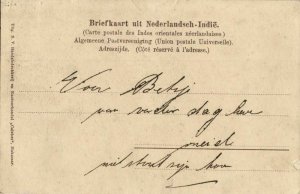 Briefkaart uit Nederlandsch-Indië.
(Carte postale des Indes orientales néerlandaises.)
Algemeene Postvereeniging (Union postale Universelle).
Adreszijde. (Côté réservé à l'adresse.)
Voor Betsij
van vader dag lieve
meid
niet stout zijn hoor